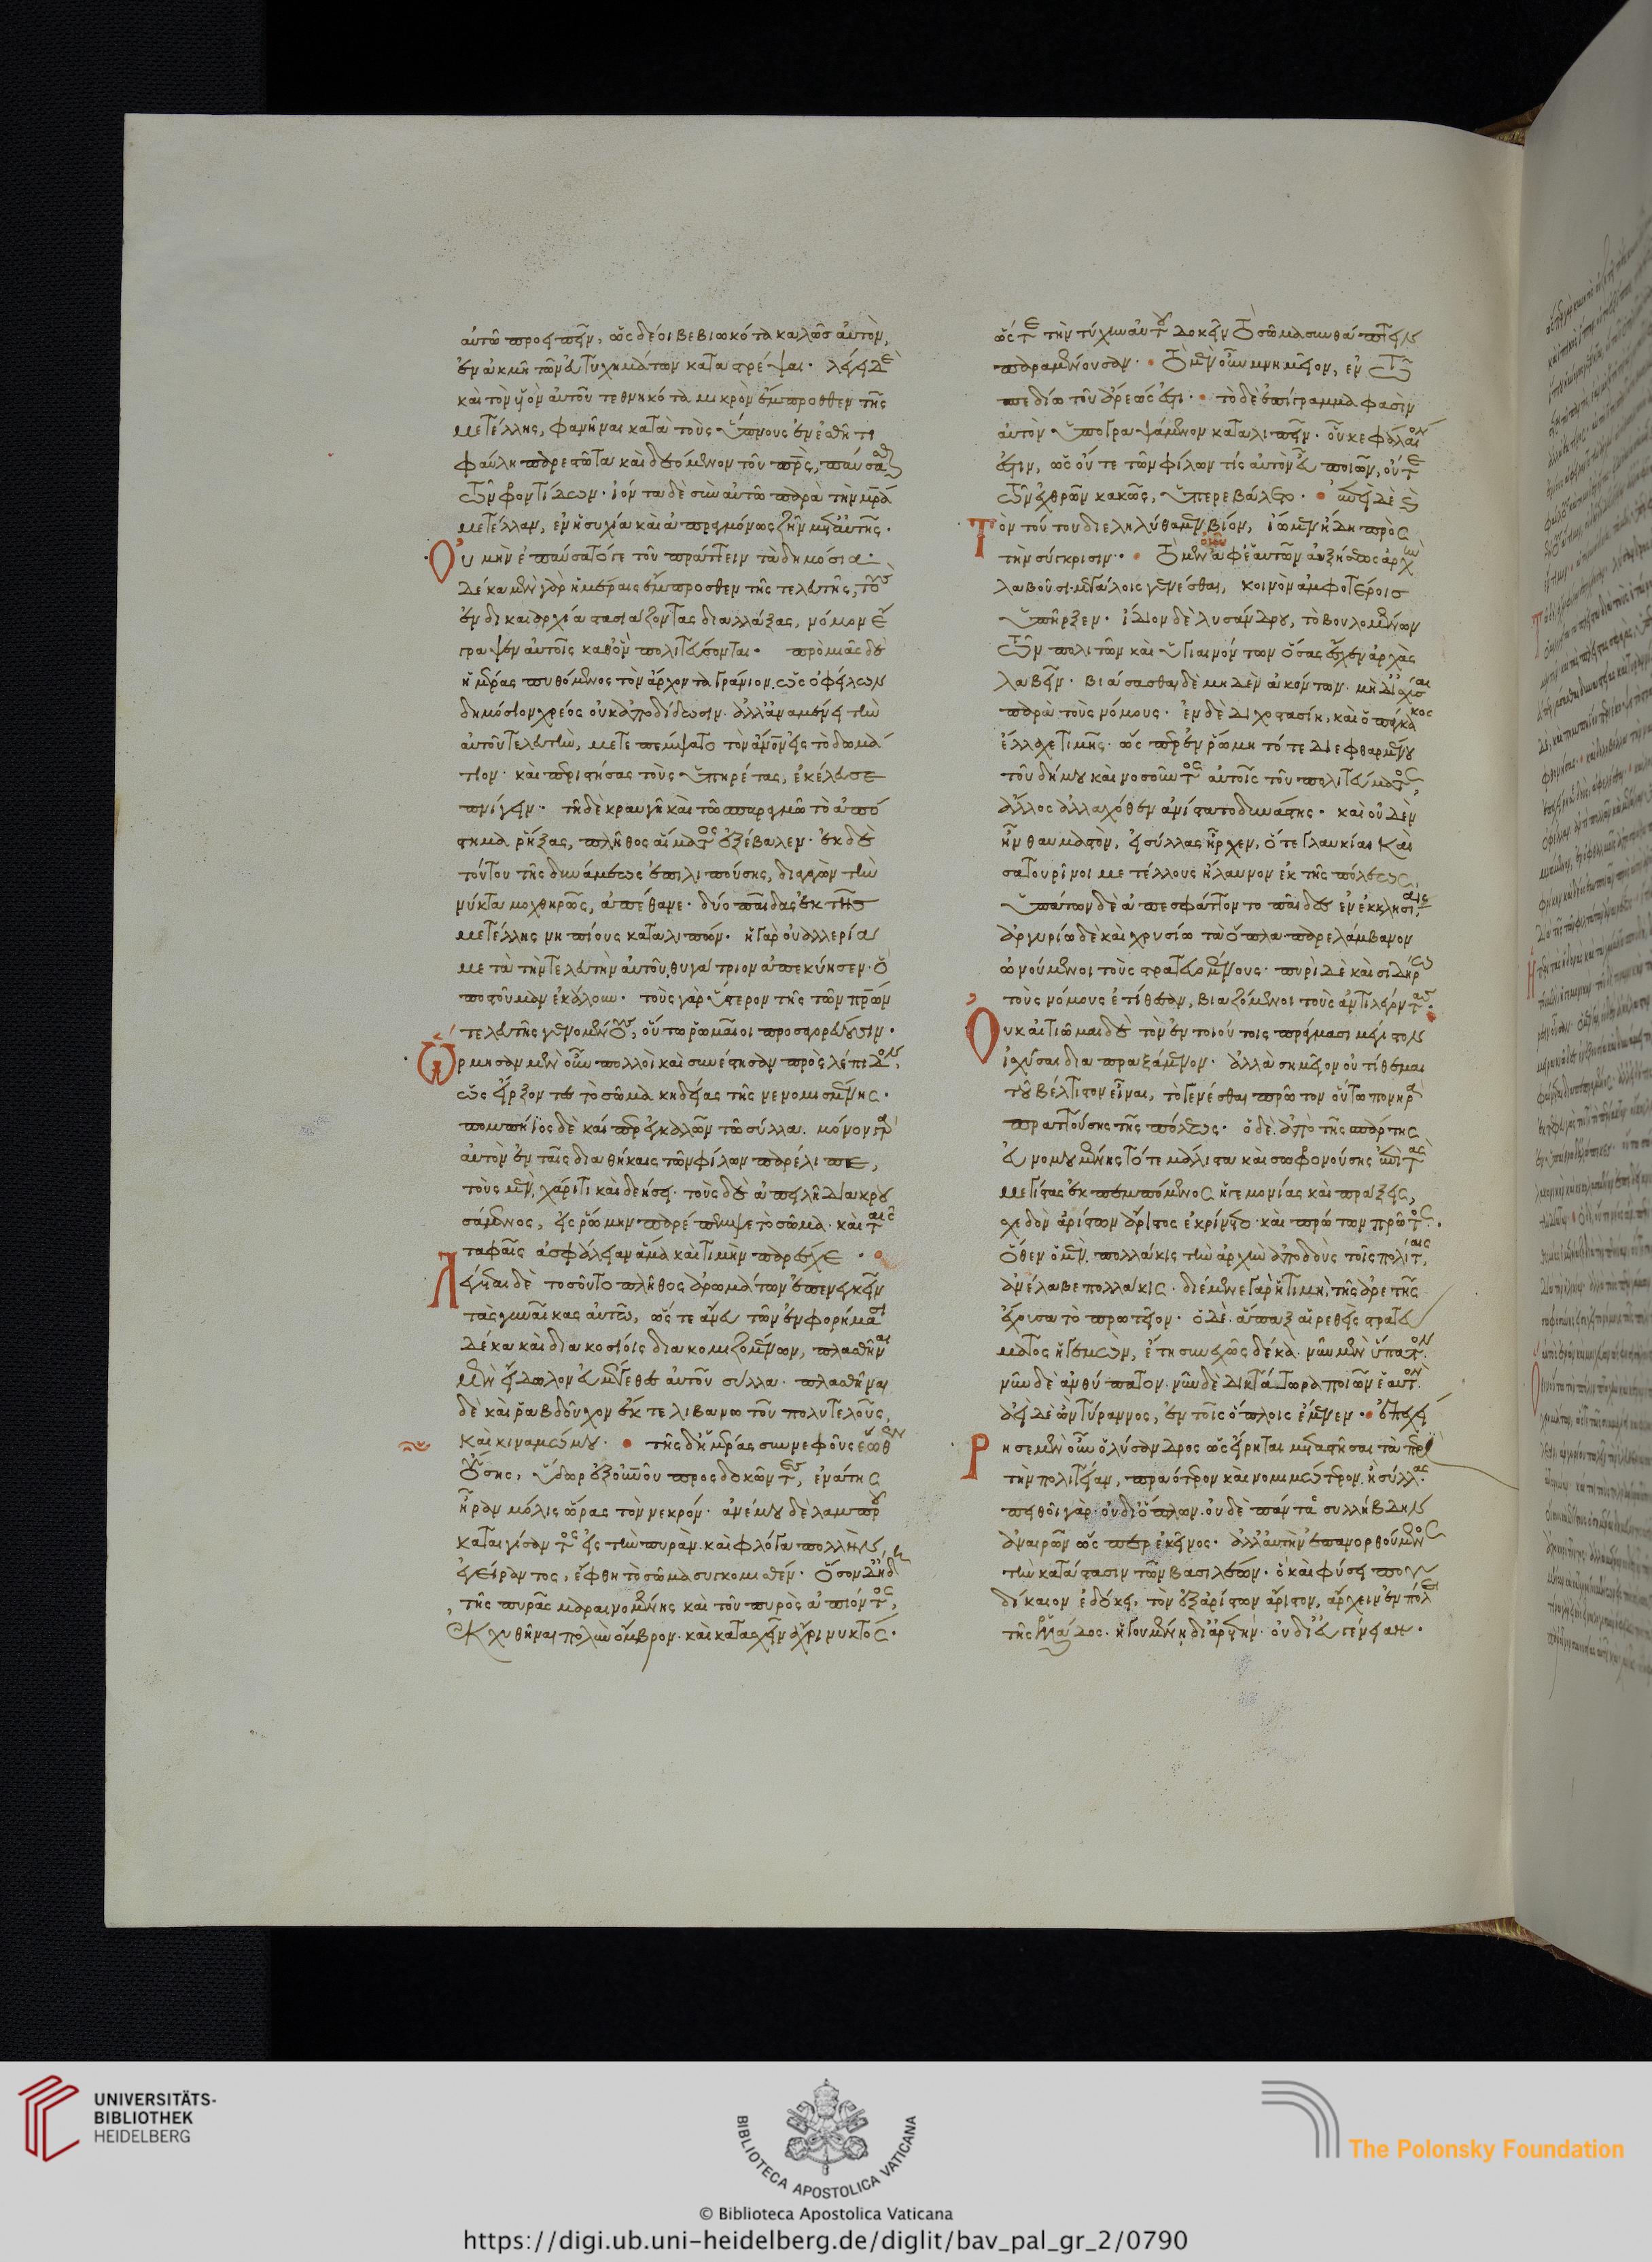 αὐτῷ προειπεῖν, ὡς δέοι βεβιωκότα καλῶς αὐτὸν,
ἐν ἀκμῇ τῶν εὐτυχημάτων καταστρέψαι· λέγει δὲ
καὶ τὸν υἱὸν αὐτοῦ τεθνηκότα μικρὸν ἔμπροσθεν τῆς
μετέλλης, φανῆναι κατὰ τοὺς ὕπνους ἐν ἐσθῆτι
φαύλῃ παρεστῶτα καὶ δεόμενον τοῦ πρς, παύσασθαι
τῶν φροντίδων· ἰόντα δὲ σὺν αὐτῷ παρὰ τὴν μρα
μετέλλαν, ἐν ἡσυχίᾳ καὶ ἀπραγμόνως ζῆν μετ' αὐτῆς·
Οὐ μὴν ἐπαύσατό γε τοῦ πράττειν τὰ δημόσια·
δέκα μὲν γὰρ ἡμέραις ἔμπροσθεν τῆς τελευτῆς, τοὺς
ἐν δικαιαρχίᾳ στασιάζοντας διαλλάξας, νόμον ἔ
γραψεν αὐτοῖς καθ' ὃν πολιτεύσονται· πρὸ μιᾶς δὲ
ἡμέρας πυθόμενος τὸν ἄρχοντα Γράνιον, ὡς ὀφείλων
δημόσιον χρέος οὐκ ἀποδίδωσιν· ἀλλ' ἀναμένει τὴν
αὐτοῦ τελευτὴν, μετεπέμψατο τὸν ἄνον εἰς τὸ δωμά
τιον· καὶ περιστήσας τοὺς ὑπηρέτας, ἐκέλευσε
πνίγειν· τῇ δὲ κραυγῇ καὶ τῷ σπαραγμῷ τὸ ἀπό
στημα ῥήξας, πλῆθος αἵματος ἐξέβαλεν· ἐκ δὲ
τούτου τῆς δυνάμεως ἐπιλιπούσης, διαγαγὼν τὴν
νύκτα μοχθηρῶς, ἀπέθανε· δύο παῖδας ἐκ τῆς
μετέλλης νηπίους καταλιπών· ἡ γὰρ οὐαλλερία
μετὰ τὴν τελευτὴν αὐτοῦ, θυγάτριον ἀπεκύησεν· ὃ
ποστοῦμαν ἐκάλουν· τοὺς γὰρ ὕστερον τῆς τῶν πρων
τελευτῆς γενομένους, οὕτω ῥωμαῖοι προσαγορεύουσιν·
Ὥρμησαν μὲν οὖν πολλοὶ καὶ συνέστησαν πρὸς λέπιδον,
ὡς εἴρξοντες τὸ σῶμα κηδείας τῆς νενομισμένης·
πομπήϊος δὲ καίπερ ἐγκαλῶν τῷ σύλλᾳ. μόνον γὰρ
αὐτὸν ἐν ταῖς διαθήκαις τῶν φίλων παρέλιπε,
τοὺς μὲν, χάριτι καὶ δεήσει· τοὺς δὲ ἀπειλῇ διακρου
σάμενος, εἰς ῥώμην παρέπεμψε τὸ σῶμα· καὶ ταῖς
ταφαῖς ἀσφάλειαν ἅμα καὶ τιμὴν παρέσχε·
Λέγεται δὲ τοσοῦτο πλῆθος ἀρωμάτων ἐπενεγκεῖν
τὰς γυναῖκας αὐτῷ, ὥστε ἄνευ τῶν ἐν φορήμασι
δέκα καὶ διακοσίοις διακομιζομένων, πλασθῆναι
μὲν εἴδωλον εὐμέγεθες αὐτοῦ σύλλα· πλασθῆναι
δὲ καὶ ῥαβδοῦχον ἔκ τε λιβανωτοῦ πολυτελοῦς,
καὶ κιναμώμου· τῆς δ' ἡμέρας συννεφοῦς ἕωθεν
οὔσης, ὕδωρ ἐξ οὐνοῦ προσδοκῶντες, ἐνάτης
ἦραν μόλις ὥρας τὸν νεκρόν· ἀνέμου δὲ λαμπροῦ
καταιγίσαντος εἰς τὴν πυρὰν· καὶ φλόγα πολλὴν,
ἐγείραντος, ἔφθη τὸ σῶμα συγκομισθέν· ὅσον ἤδη
τῆς πυρᾶς μαραινομένης καὶ τοῦ πυρὸς ἀπιόντος,
ἐκχυθῆναι πολὺν ὄμβρον· καὶ κατασχεῖν ἄχρι νυκτός·
ὥστε τὴν τύχην αὐτοῦ δοκεῖν τὸ σῶμα συνθάπτειν
παραμένουσαν· Τὸ μὲν οὖν μνημεῖον, ἐν τῷ
πεδίῳ τοῦ ἄρεώς ἐστι· τὸ δὲ ἐπίγραμμα φασὶν
αὐτὸν ὑπογραψάμενον καταλιπεῖν· οὗ κεφάλαιόν
ἐστιν, ὡς οὔτε τῶν φίλων τίς αὐτὸν εὖ ποιῶν, οὔτε
τῶν ἐχθρῶν κακῶς, ὑπερεβάλετο· ἐπεὶ δὲ καὶ
Τὸν τούτου διεληλύθαμεν βίον, ἴωμεν ἤδη πρὸς
τὴν σύγκρισιν· Τὸ μὲν οὖν ἀφ' ἑαυτῶν αὐξήσεως ἀρχὴν
λαβοῦσι μεγάλοις γενέσθαι, κοινὸν ἀμφοτέροις
ὑπῆρξεν· ἴδιον δὲ λυσάνδρου, τὸ βουλομένων
τῶν πολιτῶν καὶ ὑγιαινόντων ὅσας ἔσχεν ἀρχὰς
λαβεῖν· βιάσασθαι δὲ μηδὲν ἀκόντων· μηδ' ἰσχῦσαι
παρὰ τοὺς νόμους· ἐν δὲ διχοστασίῃ, καὶ ὁ πάγκακος
ἔλλαχε τιμῆς· ὡς περ ἐν ῥώμῃ τότε διεφθαρμένου
τοῦ δήμου καὶ νοσοῦντος αὐτοῖς τοῦ πολιτεύματος,
ἄλλος ἀλλαχόθεν ἀνίστατο δυνάστης· καὶ οὐδὲν
ἦν θαυμαστὸν, εἰ σύλλας ἦρχεν, ὅτε Γλαυκίαι καὶ
σατουρῖνοι μετέλλους ἤλαυνον ἐκ τῆς πόλεως,
ὑπάτων δὲ ἀπεσφάττοντο παῖδες ἐν ἐκκλησίαις,
ἀργυρίῳ δὲ καὶ χρυσίῳ τὰ ὅπλα παρελάμβανον
ὠνούμενοι τοὺς στρατευομένους· πυρὶ δὲ καὶ σιδήρῳ
τοὺς νόμους ἐτίθεσαν, βιαζόμενοι τοὺς ἀντιλέγοντας·
Οὐκ αἰτιῶμαι δὲ τὸν ἐν τοιούτοις πράγμασι μέγιστον
ἰσχύσαι διαπραξάμενον· ἀλλὰ σημεῖον οὐ τίθεμαι
τοῦ βέλτιστον εἶναι, τὸ γενέσθαι πρῶτον οὕτω πονηρὰ
πραττούσης τῆς πόλεως· ὁ δὲ ἀπὸ τῆς σπάρτης
εὐνομουμένης τότε μάλιστα καὶ σωφρονούσης ἐπὶ τὰς
μεγίστας ἐκπεμπόμενος ἡγεμονίας καὶ πράξεις,
σχεδὸν ἀρίστων ἄριστος ἐκρίνετο καὶ πρώτων πρῶτος.
ὅθεν ὁ μὲν, πολλάκις τὴν ἀρχὴν ἀποδοὺς τοῖς πολίταις,
ἀνέλαβε πολλάκις· διέμενε γὰρ ἡ τιμὴ, τῆς ἀρετῆς
ἔχουσα τὸ πρωτεῖον· ὁ δὲ ἅπαξ αἱρεθεὶς στρατεύ
ματος ἡγεμὼν, ἔτη συνεχῶς δέκα· νῦν μὲν ὕπατον·
νῦν δὲ ἀνθύπατον· νῦν δὲ δικτάτωρα ποιῶν ἑαυτὸν·
ἀεὶ δὲ ὢν τύραννος, ἐν τοῖς ὅπλοις ἔμενεν· ἐπεχεί
Ρησε μὲν οὖν ὁ λύσανδρος ὡς εἴρηται μεταστῆσαι τὰ περὶ
τὴν πολιτείαν, πραότερον καὶ νομιμώτερον, ἢ σύλλας·
πειθοῖ γὰρ· οὐ δι' ὅπλων· οὐδὲ πάντα συλλήβδην
ἀναιρῶν ὥς περ ἐκεῖνος· ἀλλ' αὐτὴν ἐπανορθούμενος
τὴν κατάστασιν τῶν βασιλέων· ὃ καὶ φύσει που
δίκαιον ἐδόκει, τὸν ἐξ ἀρίστων ἄριστον, ἄρχειν ἐν πόλει
τῆς ἑλλάδος· ἡγουμένῃ δι' ἀρετὴν· οὐ δι' εὐγένειαν·
UNIVERSITÄTS-
BIBLIOTHEK
HEIDELBERG
BIBLIOTECA APOSTOLICA VATICANA
The Polonsky Foundation
© Biblioteca Apostolica Vaticana
https://digi.ub.uni-heidelberg.de/diglit/bav_pal_gr_2/0790